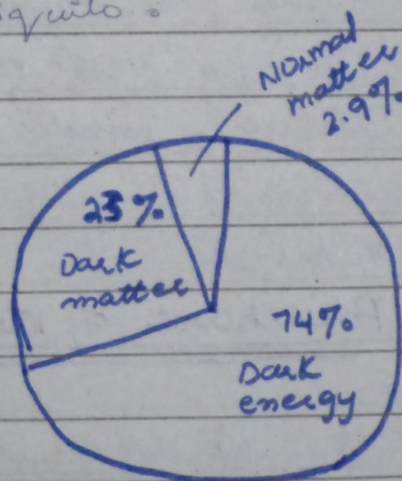 Normal
matter
2.9%
23%
Dark
matter
74%
Dark
energy